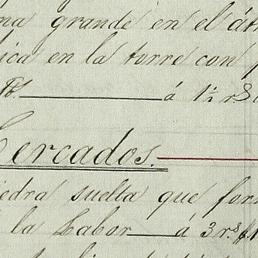 na grande en el
ica en la torre con
á 1½ rs
Cercados.
iedra suelta que for
la Labor á 3 rs